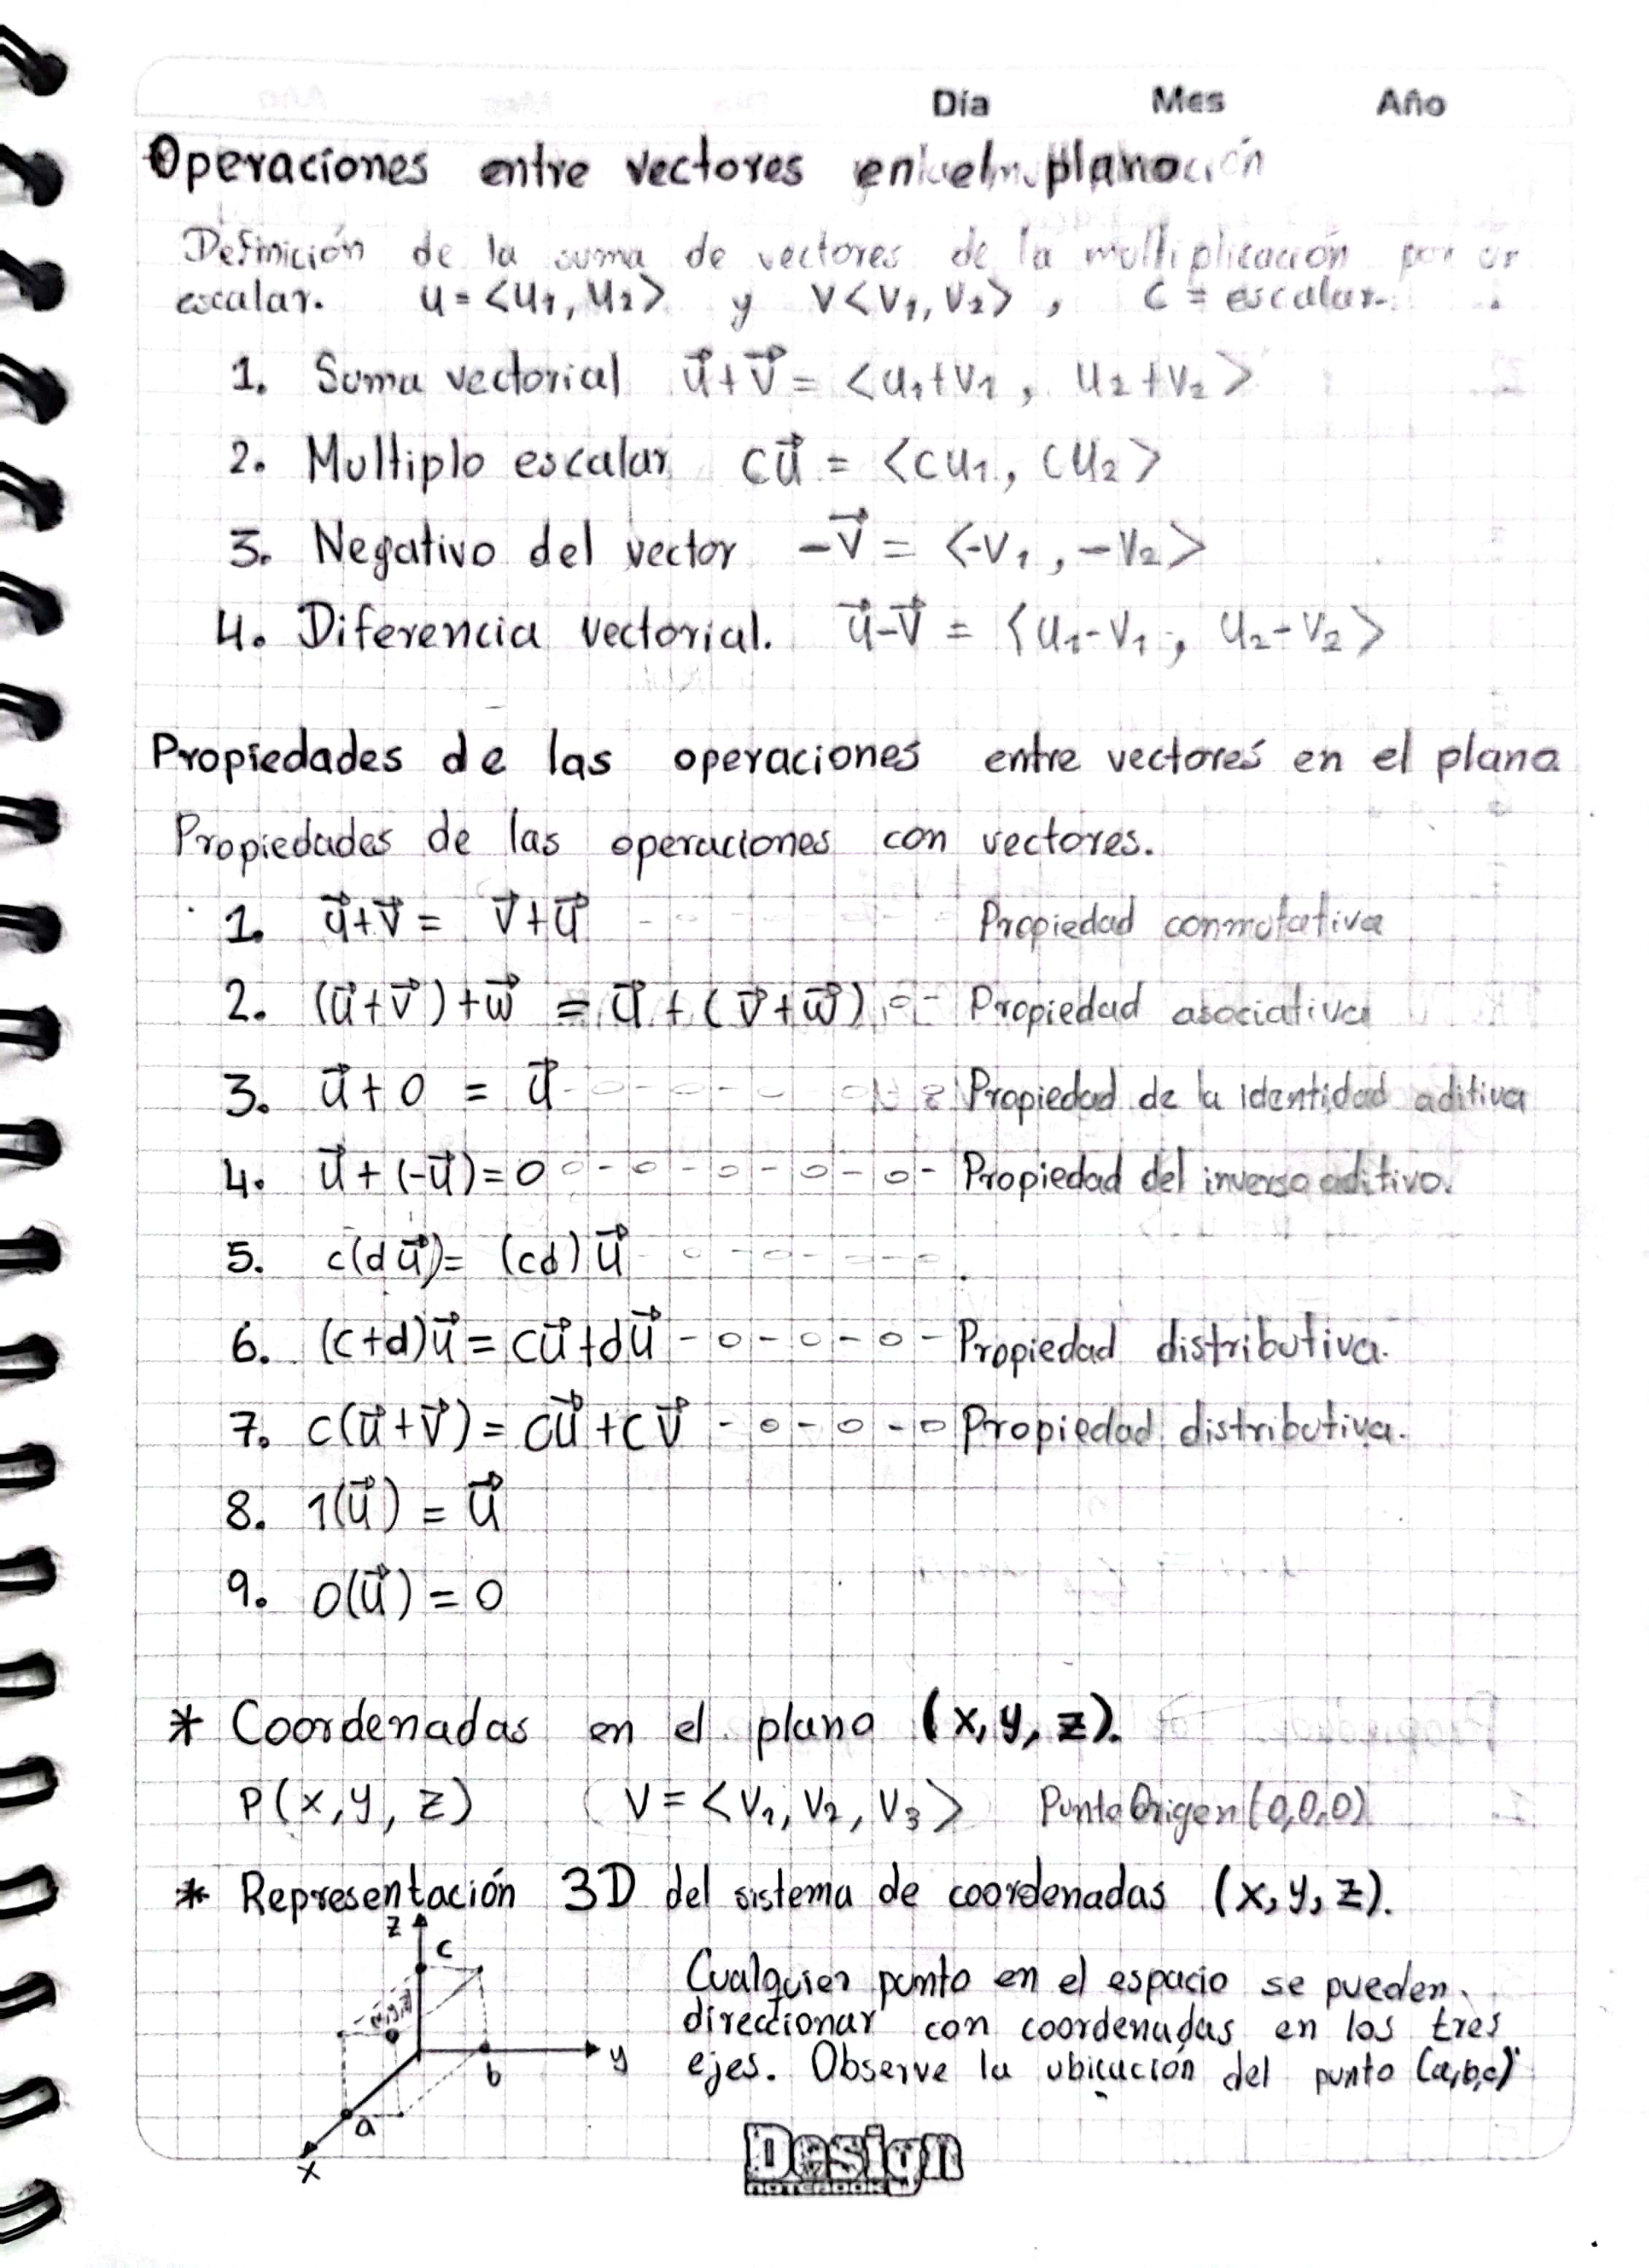 Día Mes Año
Operaciones entre vectores en el plano
Definición de la suma de vectores de la multiplicación por un
escalar. u = <u₁, u₂> y v<v₁, v₂>, c = escalar.
1. Suma vectorial u⃗+v⃗ = <u₁+v₁, u₂+v₂>
2. Multiplo escalar cu⃗ = <cu₁, cu₂>
3. Negativo del vector -v⃗ = <-v₁, -v₂>
4. Diferencia vectorial. u⃗-v⃗ = <u₁-v₁, u₂-v₂>
Propiedades de las operaciones entre vectores en el plano
Propiedades de las operaciones con vectores.
1. u⃗+v⃗ = v⃗+u⃗ Propiedad conmutativa
2. (u⃗+v⃗)+w⃗ = u⃗+(v⃗+w⃗) Propiedad asociativa
3. u⃗+0 = u⃗ Propiedad de la identidad aditiva
4. u⃗+(-u⃗)=0 Propiedad del inverso aditivo.
5. c(du⃗)= (cd)u⃗
6. (c+d)u⃗=cu⃗+du⃗ Propiedad distributiva.
7. c(u⃗+v⃗)=cu⃗+cv⃗ Propiedad distributiva.
8. 1(u⃗) = u⃗
9. 0(u⃗) = 0
* Coordenadas en el plano (x, y, z).
P(x, y, z) V = <v₁, v₂, v₃> Punto Origen (0,0,0)
* Representación 3D del sistema de coordenadas (x, y, z).
z
c
y
b
a
x
Cualquier punto en el espacio se pueden
direccionar con coordenadas en los tres
ejes. Observe la ubicación del punto (a,b,c)
Design
NOTEBOOK